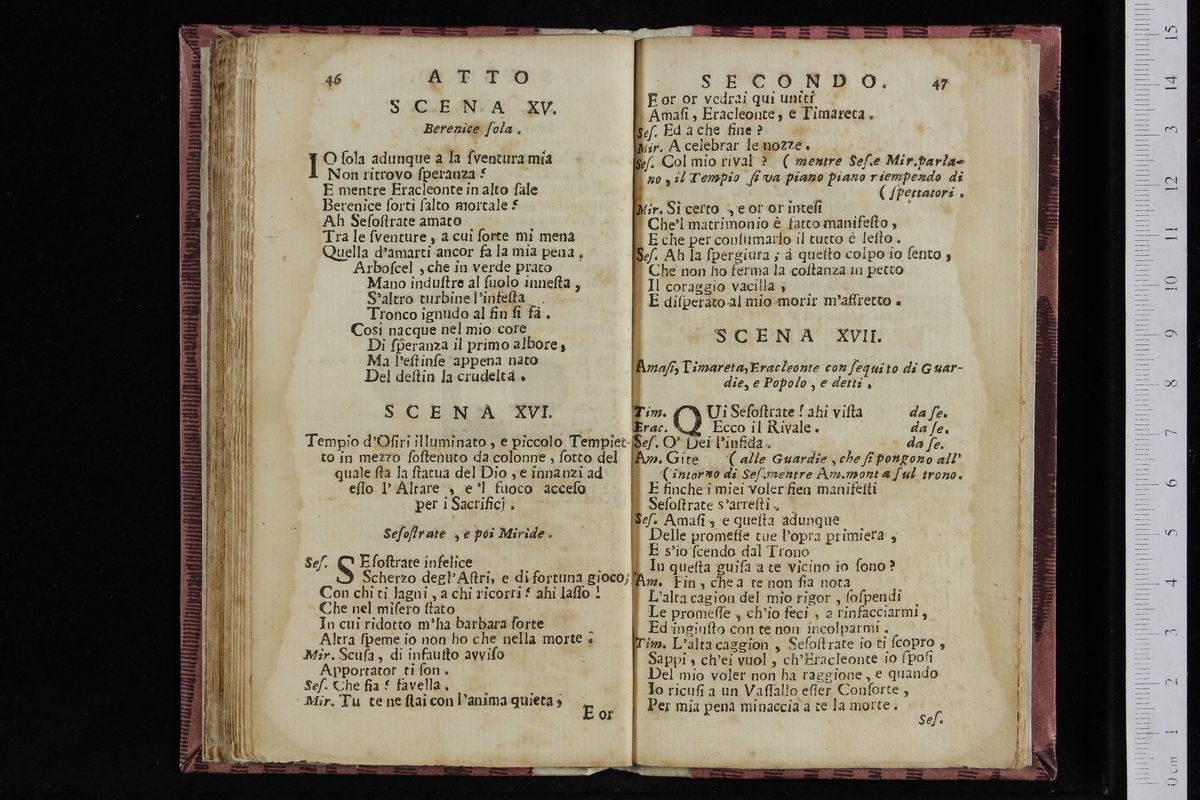 46 ATTO
SCENA XV.
Berenice ſola.
IO ſola adunque a la ſventura mia
Non ritrovo ſperanza?
E mentre Eracleonte in alto ſale
Berenice ſorti ſalto mortale?
Ah Seſoſtrate amato
Tra le ſventure, a cui ſorte mi mena
Quella d'amarti ancor fa la mia pena.
Arboſcel, che in verde prato
Mano induſtre al ſuolo inneſta,
S'altro turbine l'infeſta
Tronco ignudo al fin ſi fà.
Cosi nacque nel mio core
Di ſperanza il primo albore,
Ma l'eſtinſe appena nato
Del deſtin la crudeltà.
SCENA XVI.
Tempio d'Oſiri illuminato, e piccolo Tempiet-
to in mezzo ſoſtenuto da colonne, ſotto del
quale ſta la ſtatua del Dio, e innanzi ad
eſſo l'Altare, e 'l fuoco acceſo
per i Sacrificj.
Seſoſtrate, e poi Miride.
Seſ. SEſoſtrate infelice
Scherzo degl'Aſtri, e di fortuna gioco;
Con chi ti lagni, a chi ricorri? ahi laſſo!
Che nel miſero ſtato
In cui ridotto m'ha barbara ſorte
Altra ſpeme io non ho che nella morte.
Mir. Scuſa, di infauſto avviſo
Apportator ti ſon.
Seſ. Che fia? favella.
Mir. Tu te ne ſtai con l'anima quieta,
E or
SECONDO. 47
E or or vedrai qui uniti
Amaſi, Eracleonte, e Timareta.
Seſ. Ed a che fine?
Mir. A celebrar le nozze.
Seſ. Col mio rival? (mentre Seſ.e Mir.parla-
no, il Tempio ſi va piano piano riempendo di
(ſpettatori.
Mir. Si certo, e or or inteſi
Che'l matrimonio è fatto manifeſto,
E che per conſumarlo il tutto è leſto.
Seſ. Ah la ſpergiura; à queſto colpo io ſento,
Che non ho ferma la coſtanza in petto
Il coraggio vacilla,
E diſperato al mio morir m'affretto.
SCENA XVII.
Amaſi, Timareta, Eracleonte con ſequito di Guar-
die, e Popolo, e detti.
Tim. QUi Seſoſtrate! ahi viſta da ſe.
Erac. Ecco il Rivale. da ſe.
Seſ. O' Dei l'infida. da ſe.
Am. Gite (alle Guardie, che ſi pongono all'
(intorno di Seſ.mentre Am.monta ſul trono.
E finche i miei voler ſien manifeſti
Seſoſtrate s'arreſti.
Seſ. Amaſi, e queſta adunque
Delle promeſſe tue l'opra primiera,
E s'io ſcendo dal Trono
In queſta guiſa a te vicino io ſono?
Am. Fin, che a te non ſia nota
L'alta cagion del mio rigor, ſoſpendi
Le promeſſe, ch'io feci, a rinfacciarmi,
Ed ingiuſto con te non incolparmi.
Tim. L'alta caggion, Seſoſtrate io ti ſcopro,
Sappi, ch'ei vuol, ch'Eracleonte io ſpoſi
Del mio voler non ha raggione, e quando
Io ricuſi a un Vaſſallo eſſer Conſorte,
Per mia pena minaccia a te la morte.
Seſ.
15
14
13
12
11
10
9
8
7
6
5
4
3
2
1
0 cm